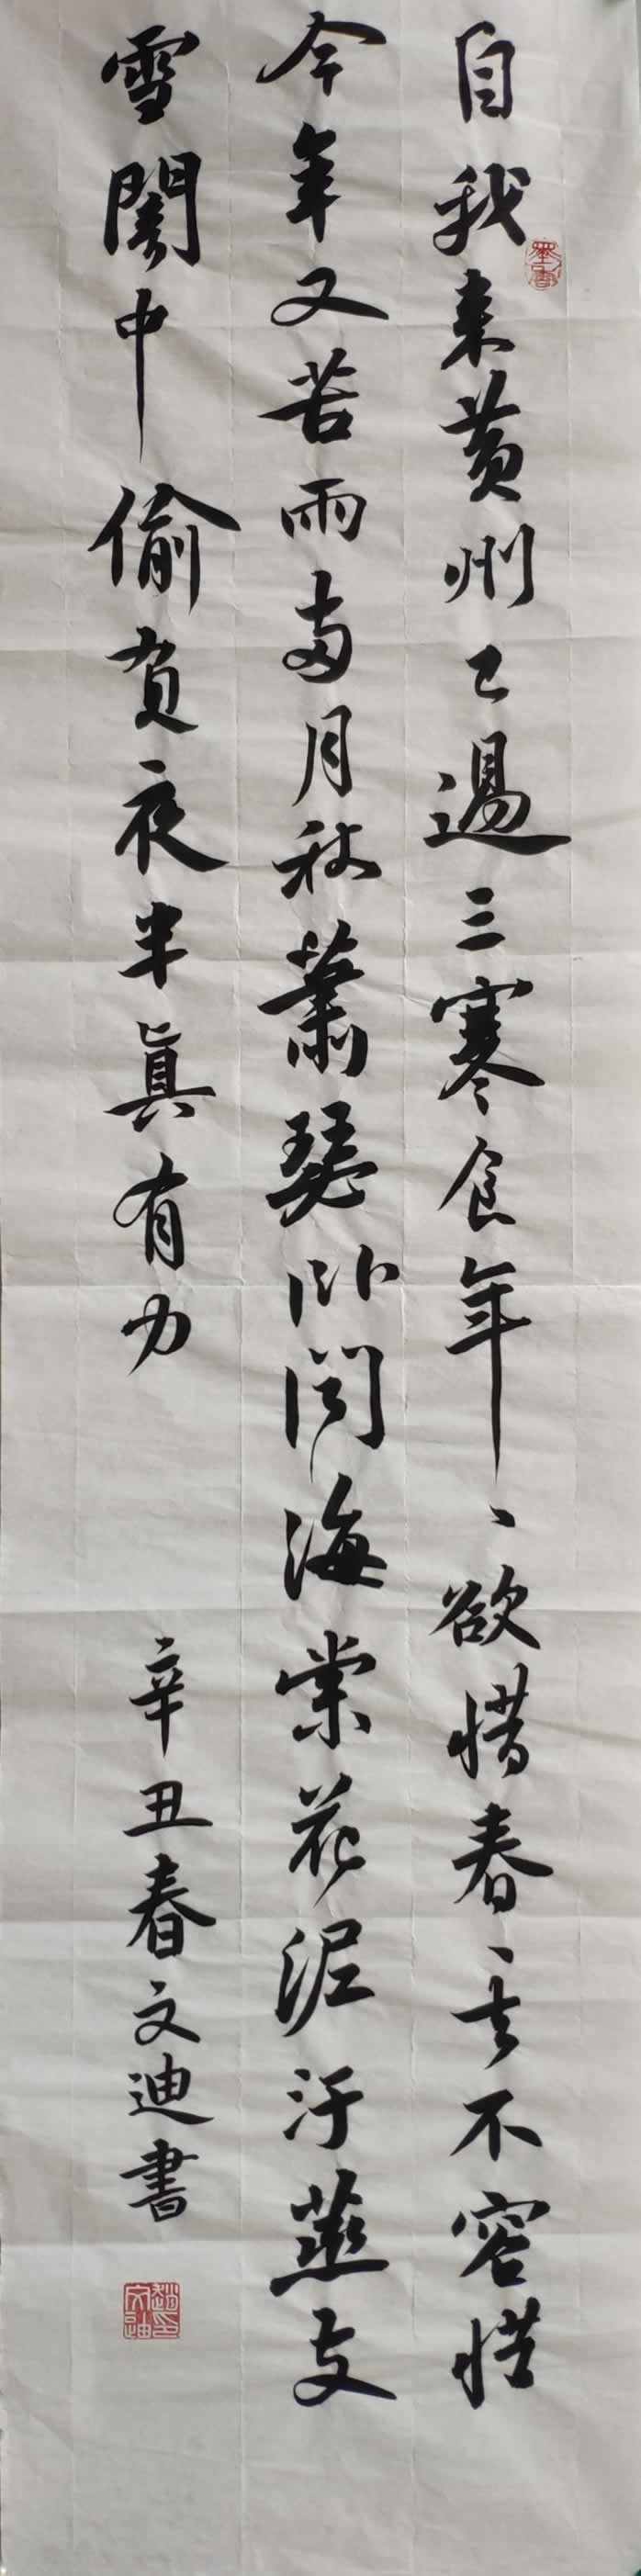 自我来黄州已過三寒食年、欲惜春、去不容惜
今年又苦雨两月秋蕭瑟卧聞海棠花泥汙燕支
雪闇中偷負夜半真有力
辛丑春文迪書